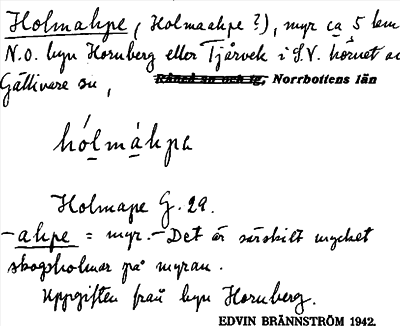 Holmahpe, (Holmaahpe?), myr ca 5 km
N.O. byn Hornberg eller Tjårvek i S.V. hörnet av
Gällivare sn, Råneå sn och tg, Norrbottens län
hólmáhpa
Holmape G. 29.
-ahpe = myr. - Det är särskilt mycket
skogsholmar på myran.
Uppgiften från byn Hornberg.
EDVIN BRÄNNSTRÖM 1942.